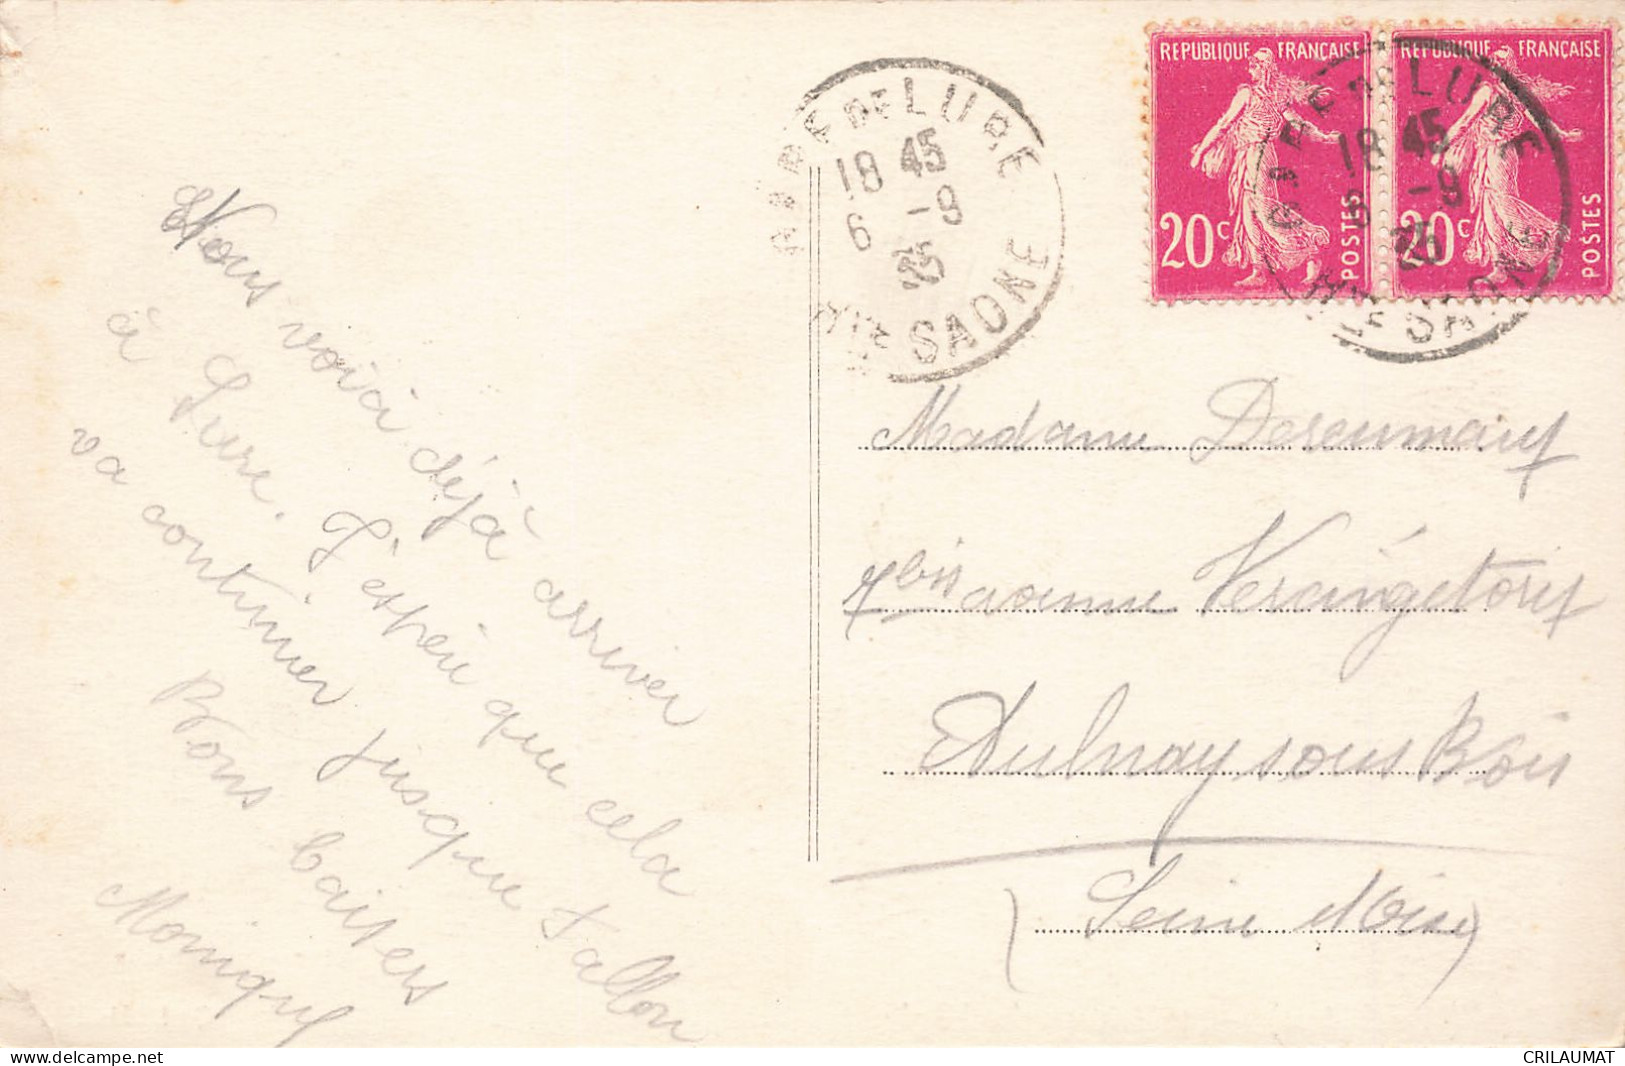 Nous voici déjà arriver
à Lure. J'espère que cela
va continuer jusque Fallon
Bons baisers
Monique
GARE DE LURE
18 45
6 -9
35
Hte SAONE
REPUBLIQUE FRANÇAISE
20c POSTES
REPUBLIQUE FRANÇAISE
20c POSTES
GARE DE LURE
18 45
6 -9
35
Hte SAONE
Madame
7 bis avenue Vercingétorix
Aulnay sous Bois
(Seine et Oise)
delcampe.net
CRILAUMAT